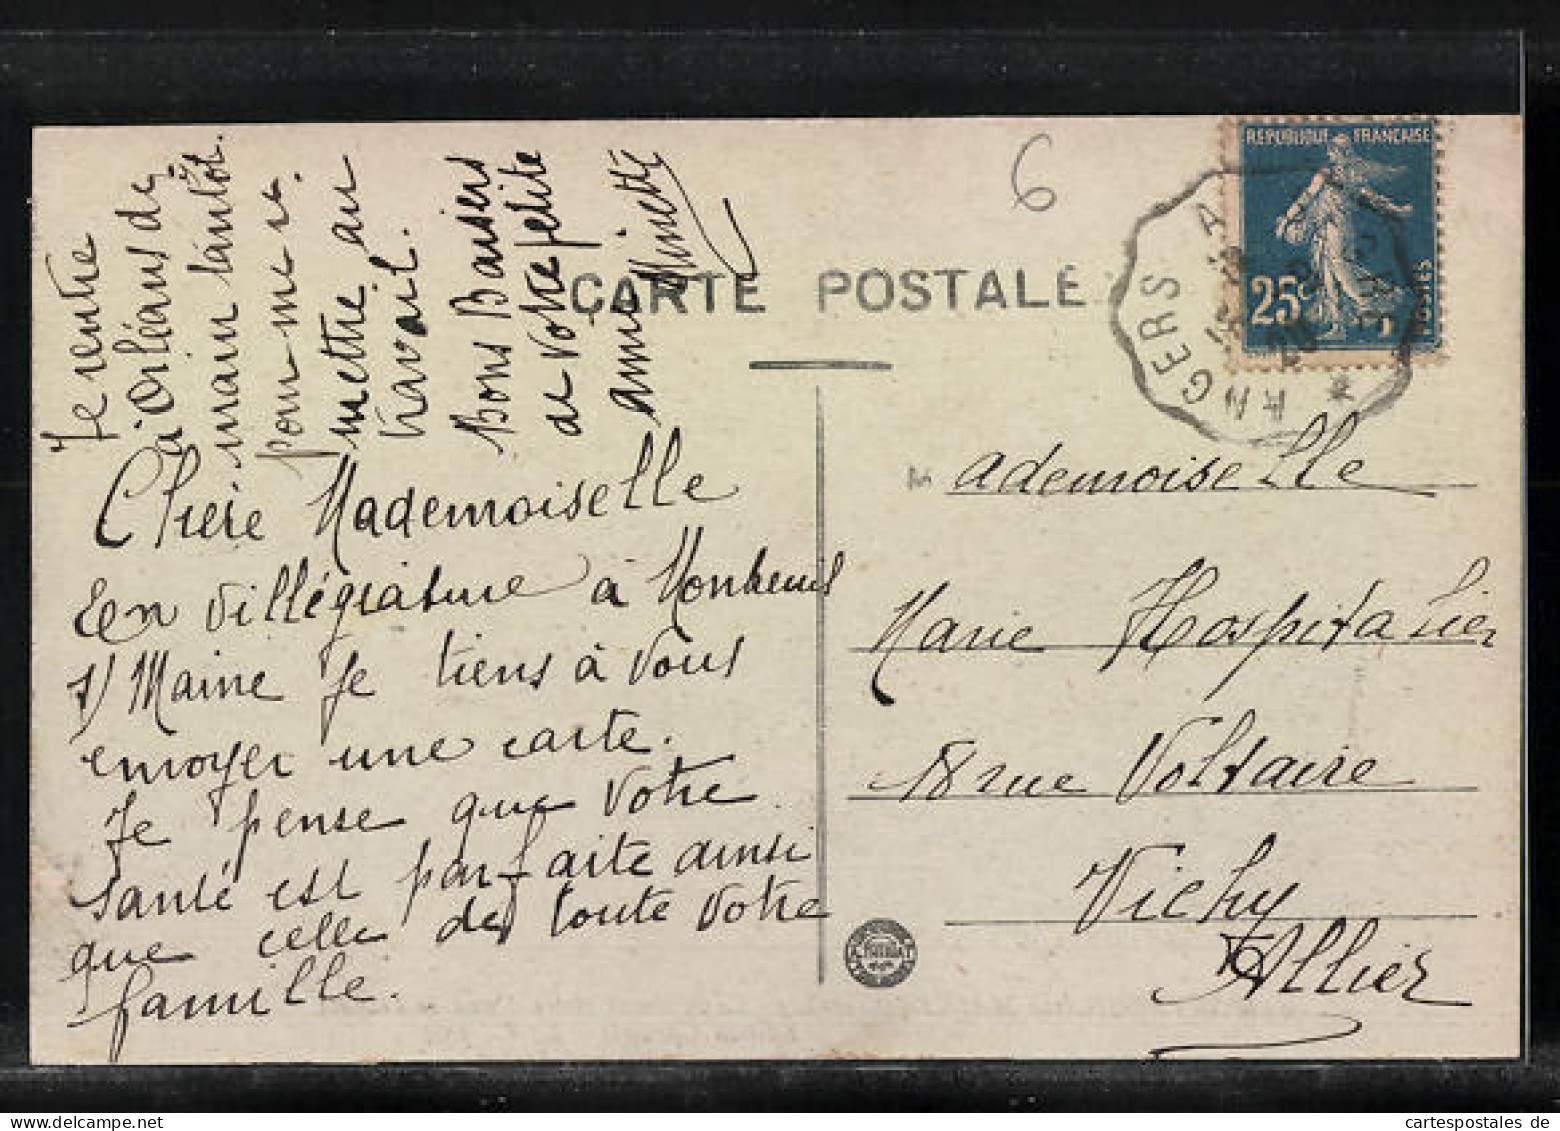 CARTE POSTALE
6
REPUBLIQUE FRANÇAISE
25c
POSTES
ANGERS A
Chère Mademoiselle
En villégiature à Montreuil
s/ Maine Je tiens à vous
envoyer une carte.
Je pense que votre
santé est parfaite ainsi
que celle de toute votre
famille.
Je rentre
à Orléans de
main tantôt
pour me re
mettre au
travail.
Bons Baisers
de votre petite
amie Ninette
Mademoiselle
Marie Hospitalier
18 rue Voltaire
Vichy
Allier
cartespostales.de